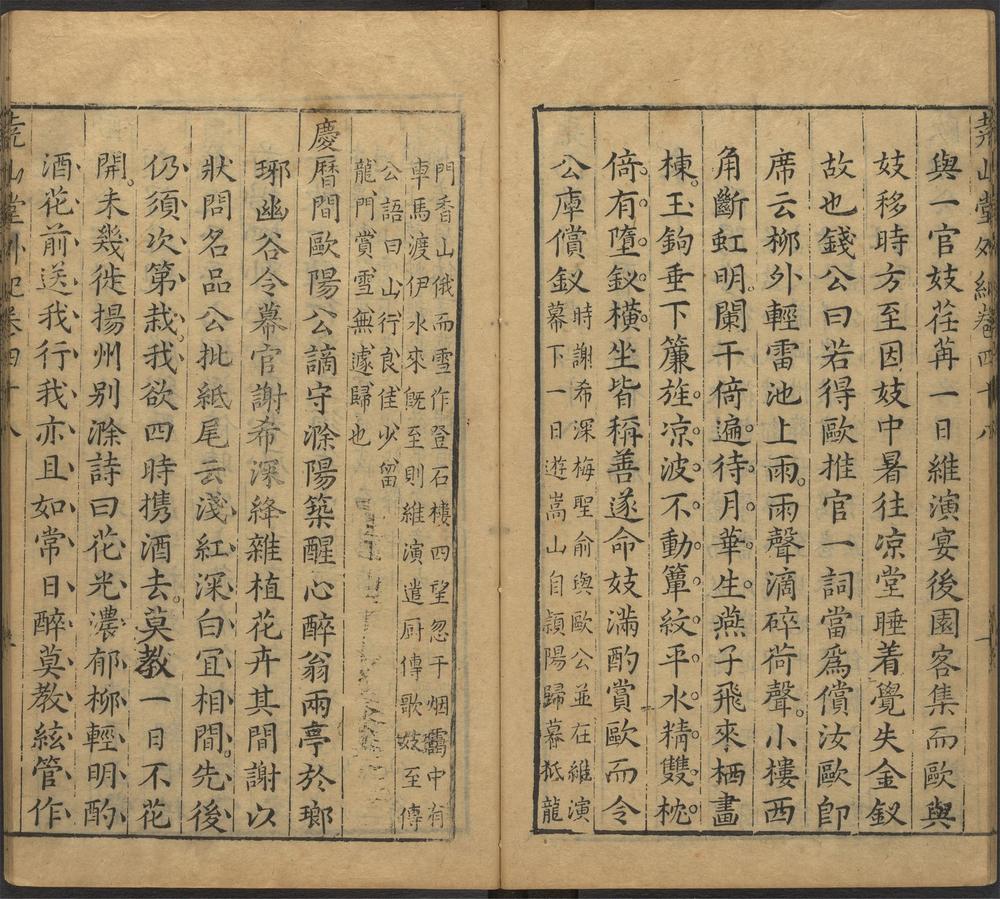 堯山堂外紀卷四十八
與一官妓荏苒一日維演宴後園客集而歐與
妓移時方至因妓中暑往凉堂睡着覺失金釵
故也錢公曰若得歐推官一詞當爲償汝歐卽
席云栁外輕雷池上雨雨聲滴碎荷聲小樓西
角斷虹明闌干倚遍待月華生燕子飛來栖畫
棟玉鉤垂下簾旌凉波不動簟紋平水精雙枕
倚有墮釵橫坐皆稱善遂命妓滿酌賞歐而令
公庫償釵
時謝希深梅聖俞與歐公並在維演
幕下一日遊嵩山自頴陽歸暮柢龍
門香山俄而雪作登石樓四望忽于烟靄中有
車馬渡伊水來旣至則維演遣厨傳歌妓至傳
公語曰山行良佳少留
龍門賞雪無遽歸也
慶曆間歐陽公謫守滁陽築醒心醉翁兩亭於瑯
琊幽谷令幕官謝希深絳雜植花卉其間謝以
狀問名品公批紙尾云淺紅深白宜相間先後
仍須次第栽我欲四時携酒去莫教一日不花
開未幾徙揚州别滁詩曰花光濃郁栁輕明酌
酒花前送我行我亦且如常日醉莫教絃管作
堯山堂外紀卷四十八